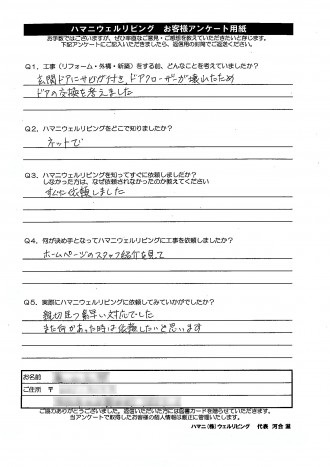 ハマニウェルリビング　お客様アンケート用紙
お手数ではございますが、ぜひ率直なご意見・ご感想を教えていただきたいと存じます。
下記アンケートにご記入いただきましたら、返信用の封筒でご返送ください。
Q1，工事（リフォーム・外構・新築）をする前、どんなことを考えていましたか？
玄関ドアにサビが付き、ドアクローザーが壊れたため
ドアの交換を考えました
Q2，ハマニウェルリビングをどこで知りましたか？
ネットで
Q3，ハマニウェルリビングを知ってすぐに依頼しましたか？
しなかった方は、なぜ依頼されなかったのか教えてください
すぐに依頼しました
Q4，何が決め手となってハマニウェルリビングに工事を依頼しましたか？
ホームページのスタッフ紹介を見て
Q5，実際にハマニウェルリビングに依頼してみていかがでしたか？
親切且つ素早い対応でした
また何かあった時は依頼したいと思います
お名前
ご住所　〒
ご協力ありがとうございました。返信いただいた方には図書カードを贈らせていただきます。
当アンケートで取得したお客様の個人情報は厳正に管理いたします。
ハマニ（株）ウェルリビング　代表　河合